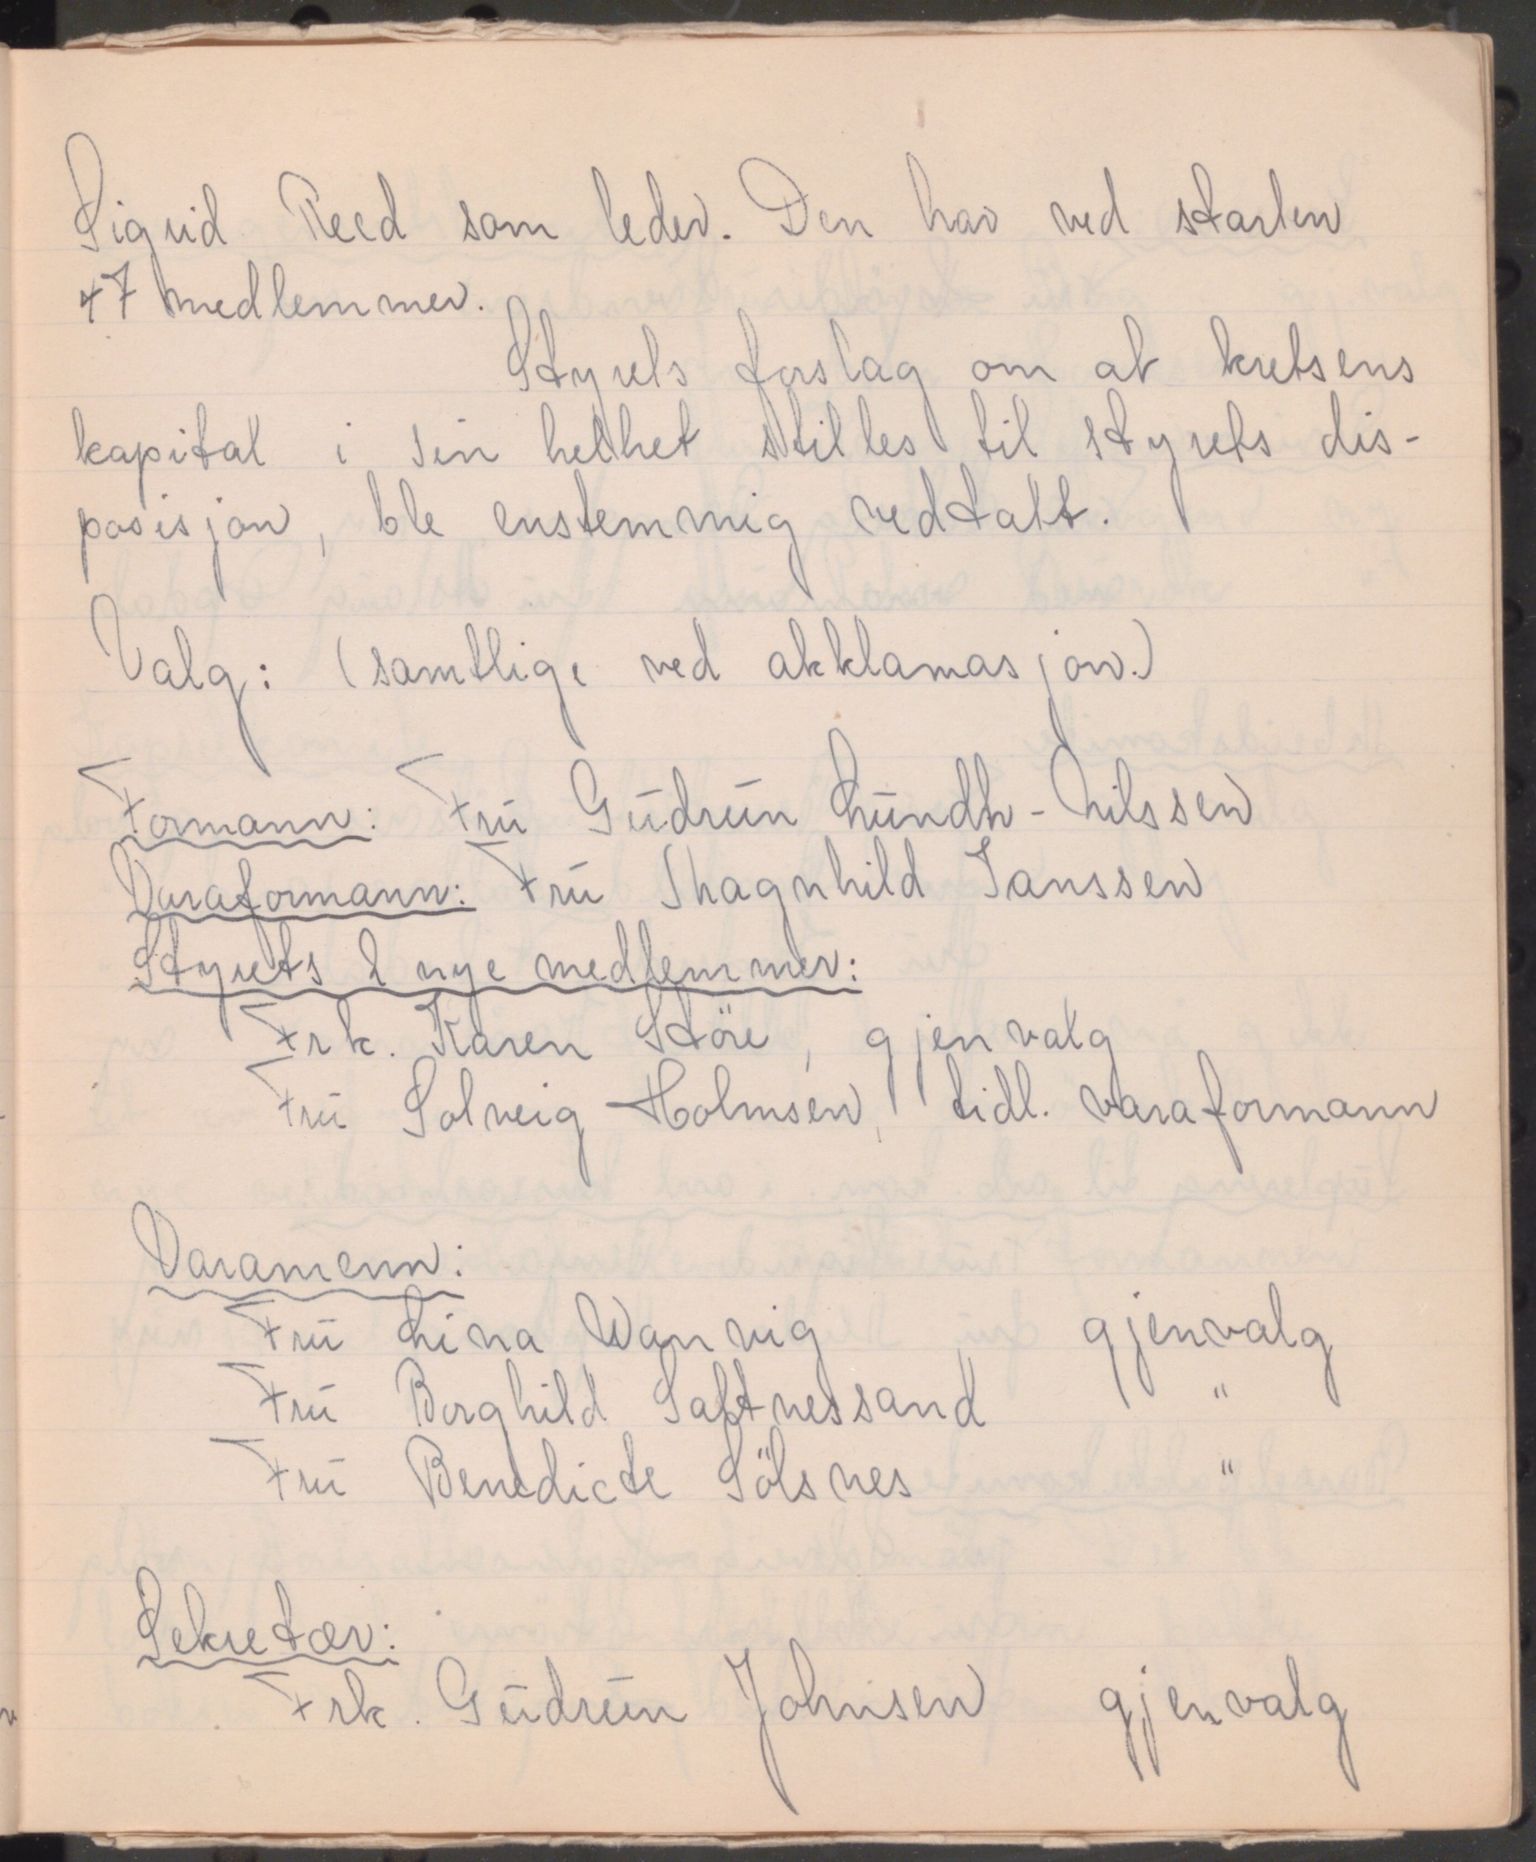 Sigrid Reed som leder. Den har ved starten
47 medlemmer.
Styrets forslag om at kretsens
kapital i sin helhet stilles til styrets dis-
posisjon, ble enstemmig vedtatt.
Valg: (samtlige ved akklamasjon.)
Formann: Fru Gudrun Lundh-Nilssen
Varaformann: Fru Ragnhild Janssen
Styrets 2 nye medlemmer:
Frk. Karen Störe, gjenvalg
Fru Solveig Holmsen, tidl. varaformann
Varamenn:
Fru Lina Wanvig gjenvalg
Fru Borghild Saltnessand "
Fru Benedicte Sölsnes "
Sekretær:
Frk. Gudrun Johnsen gjenvalg